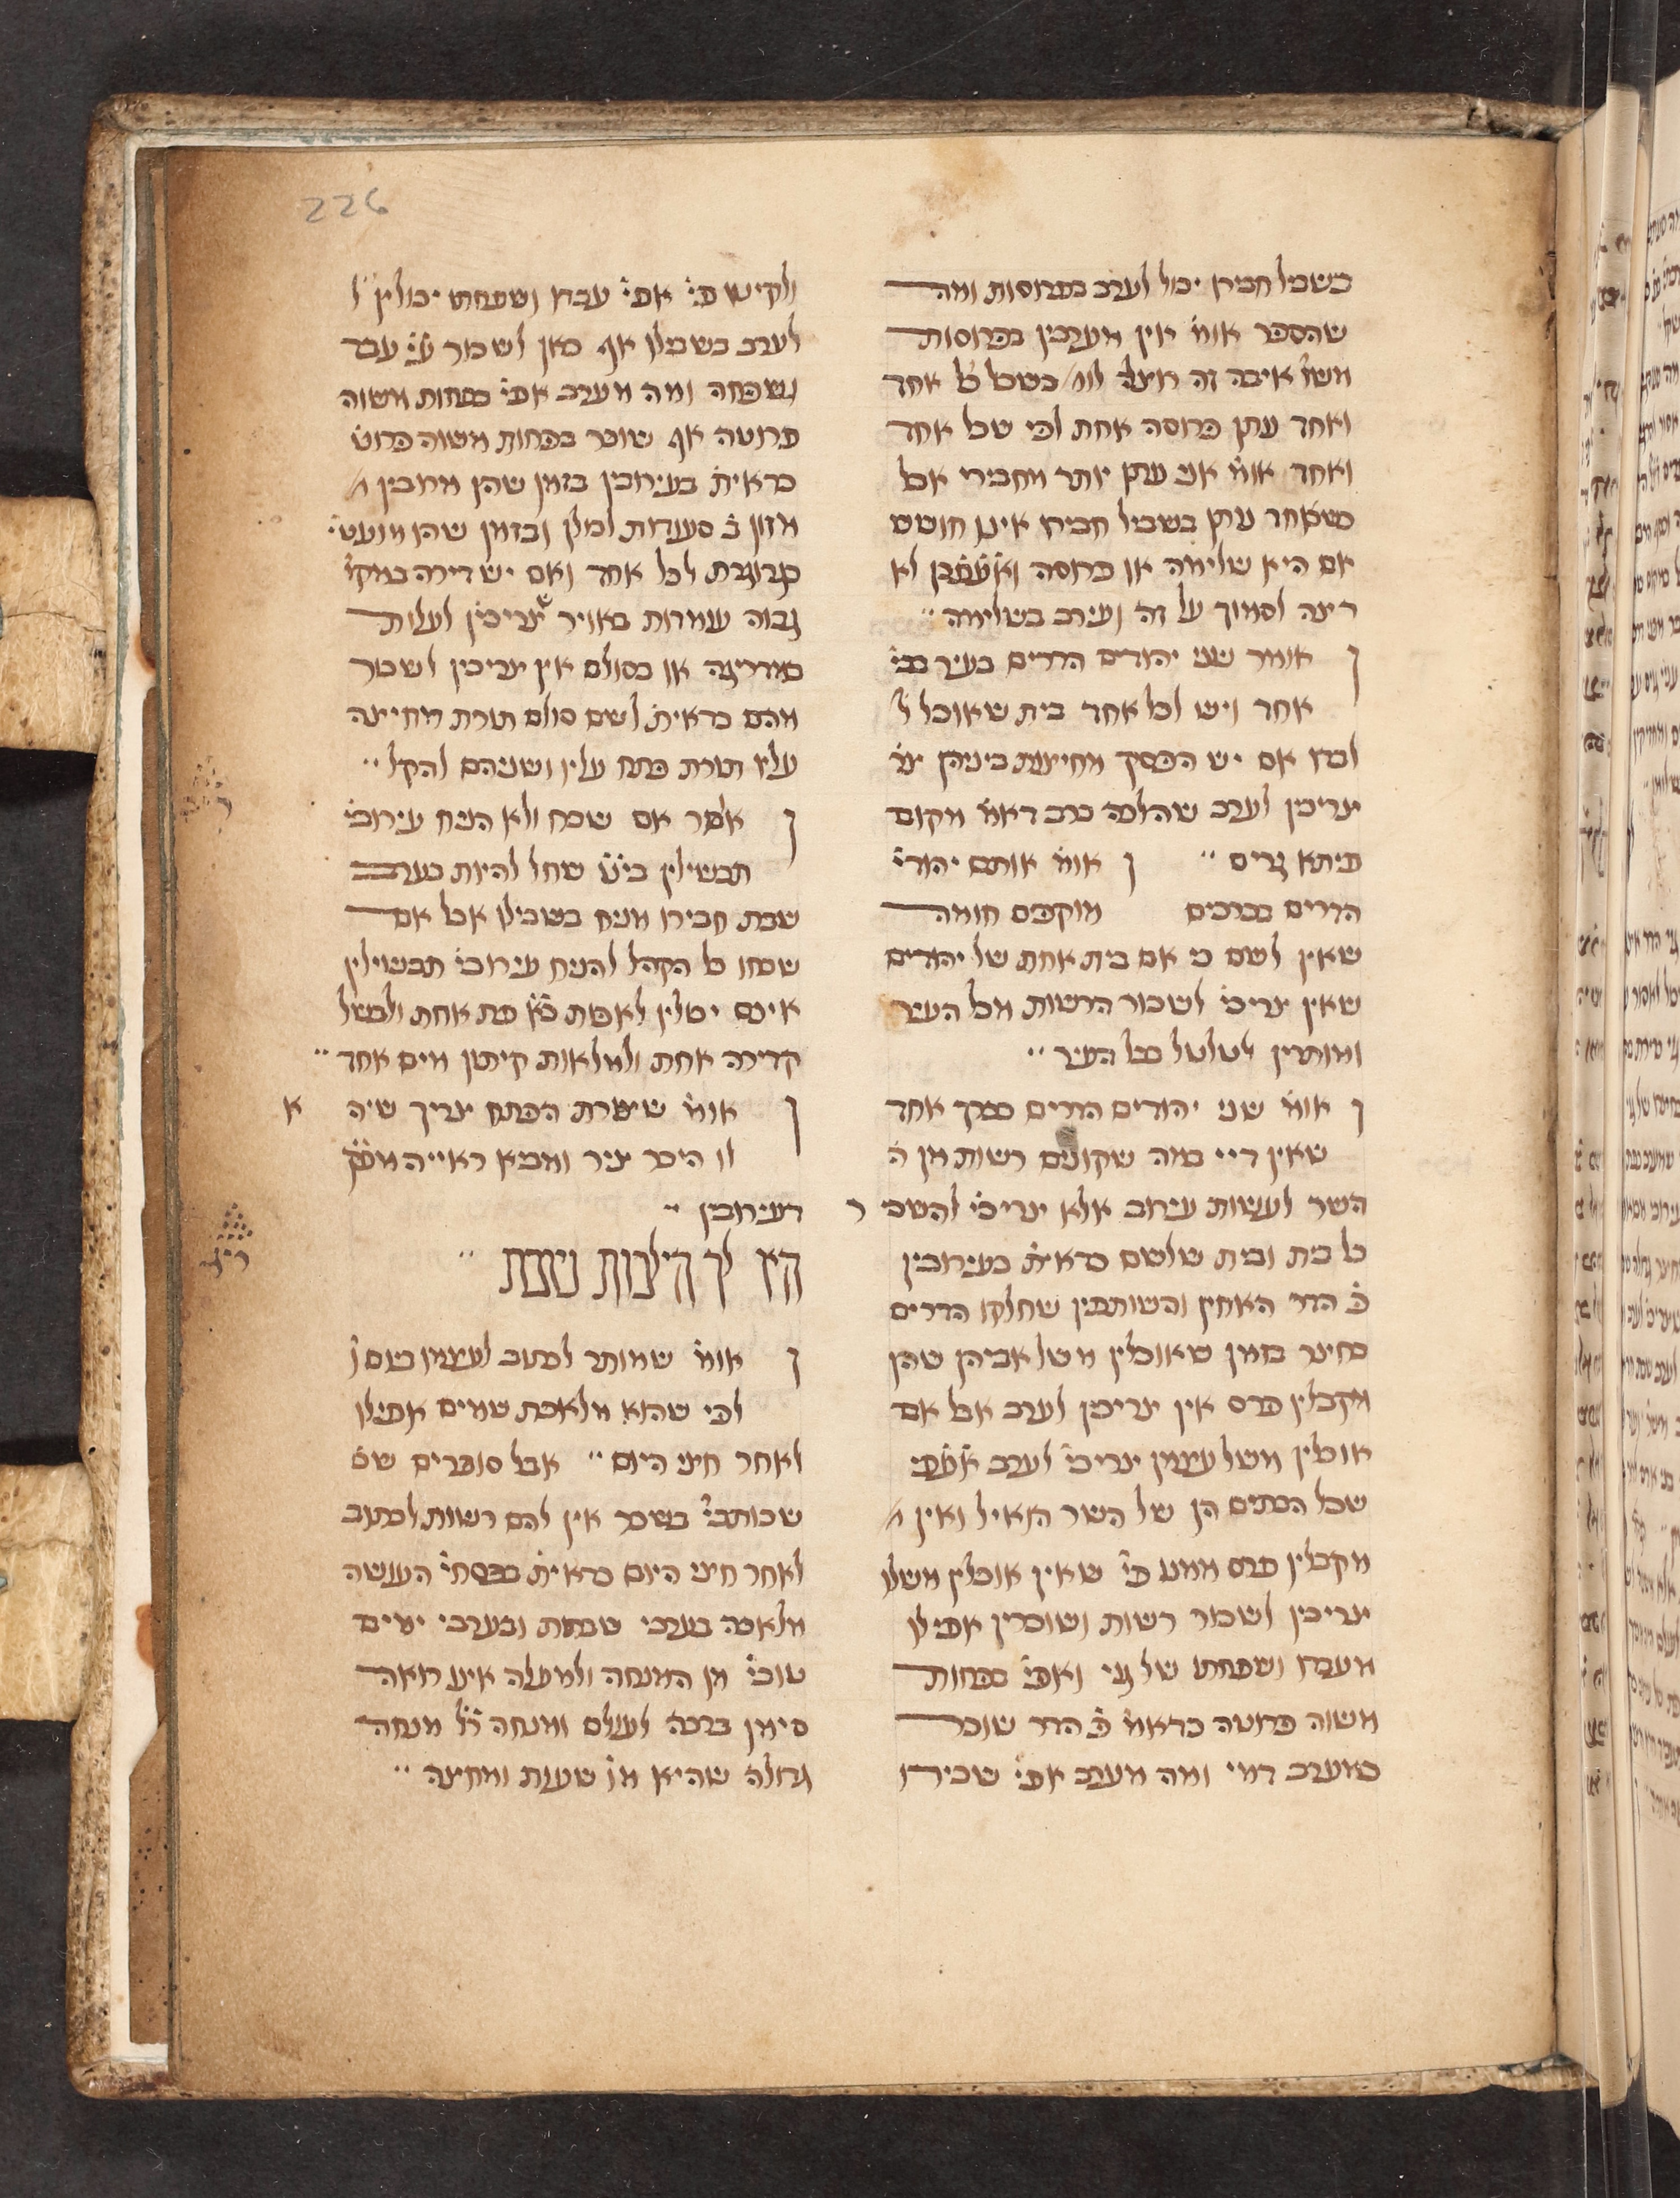 226
בשביל חבירו יכול לערב בפרוסות ומה
שהספר אומ׳ אין מערבין בפרוסות
משו׳ איבה זה רוצה לומ׳ כשכל אחד
ואחד נותן פרוסה אחת לפי שכל אחד
ואחד אומ׳ אני נותן יותר מחבירי אבל
כשאחד נותן בשביל חבירו אינן חוששין
אם היא שלימה או פרוסה לא
רצה לסמוך על זה ועירב בשלימה
אומר שני יהודים הדרים בעיר בבי׳
אחד ויש לכל אחד בית שאוכל ל׳
לבדו אם יש הפסק מחיצות ביניהן
צריכין לערב שהלכה כרב דאמ׳ מקום
פיתא גרים אומ׳ אותם יהודי׳
הדרים בכרכים מוקפים חומה
שאין לשם כי אם בית אחת של יהודים
שאין צריכי׳ לשכור הרשות מכל העיר
ומותרין לטלטל בכל העיר
אומ׳ שני יהודים הדרים בכרך אחד
שאין דיי במה שקונים רשות מן ה׳
השר לעשות עירוב אלא צריכי׳ להשכיר
כל בית ובית שלשם כדאית׳ בעירובין
פ׳ הדר האחין והשותפין שחלקו הדרים
בחצר בזמן שאוכלין משל אביהן שהן
מקבלין פרס אין צריכין לערב אבל אם
אוכלין משל עצמן צריכי׳ לערב אע״פי
שכל הבתים הן של השר הואיל ואין
מקבלין פרס ממנו פי׳ שאין אוכלין משלו
צריכין לשכור רשות ושוכרין אפילו
מעבדו ושפחתו של גוי ואפי׳ בפחות
משוה פרוטה כדאמ׳ פ׳ הדר שוכר
כמערב דמי ומה מערב אפי׳ שכירו
ולקיטו פי׳ אפי׳ עבדו ושפחתו יכולין
לערב בשבילו אף כאן לשכור ע״י עבד
ושפחה ומה מערב אפי׳ בפחות משוה
פרוטה אף שוכר בפחות משוה פרוט׳
כדאית׳ בעירובין בזמן שהן מרובין
מזון ב׳ סעודות לכולן ובזמן שהן מועטי׳
כגרוגרת לכל אחד ואם יש דירה במקו׳
גבוה עומדות באויר שצריכין לעלות
במדריגה או בסולם אין צריכין לשכור
מהם כדאית׳ לשם סולם תורת מחיצה
עליו תורת פתח עליו ושניהם להקל
אומר אם שכח ולא הניח עירובי׳
תבשילין בי״ט שחל להיות בערב
שבת חבירו מניח בשבילו אבל אם
שכחו כל הקהל להניח עירובי׳ תבשילין
אינם יכולין לאפות כ״א פת אחת ולבשל
קדירה אחת ולמלאות קיתון מים אחד
אומ׳ שצורת הפתח צריך שיהא
לו היכר ציר ומביא ראייה מפ״ק
דעירובין
הא לך הילכות שבת
אומ׳ שמותר לכתוב לעצמו בט׳
לפי שהוא מלאכת שמים אפילו
לאחר חצי היום אבל סופרים
שכותבי׳ בשכר אין להם רשות לכתוב
לאחר חצי היום כדאית׳ בפסחי׳ העושה
מלאכה בערבי שבתות ובערבי ימים
טובי׳ מן המנחה ולמעלה אינו רואה
סימן ברכה לעולם ומנחה ר״ל מנחה
גדולה שהיא מו׳ שעות ומחצה